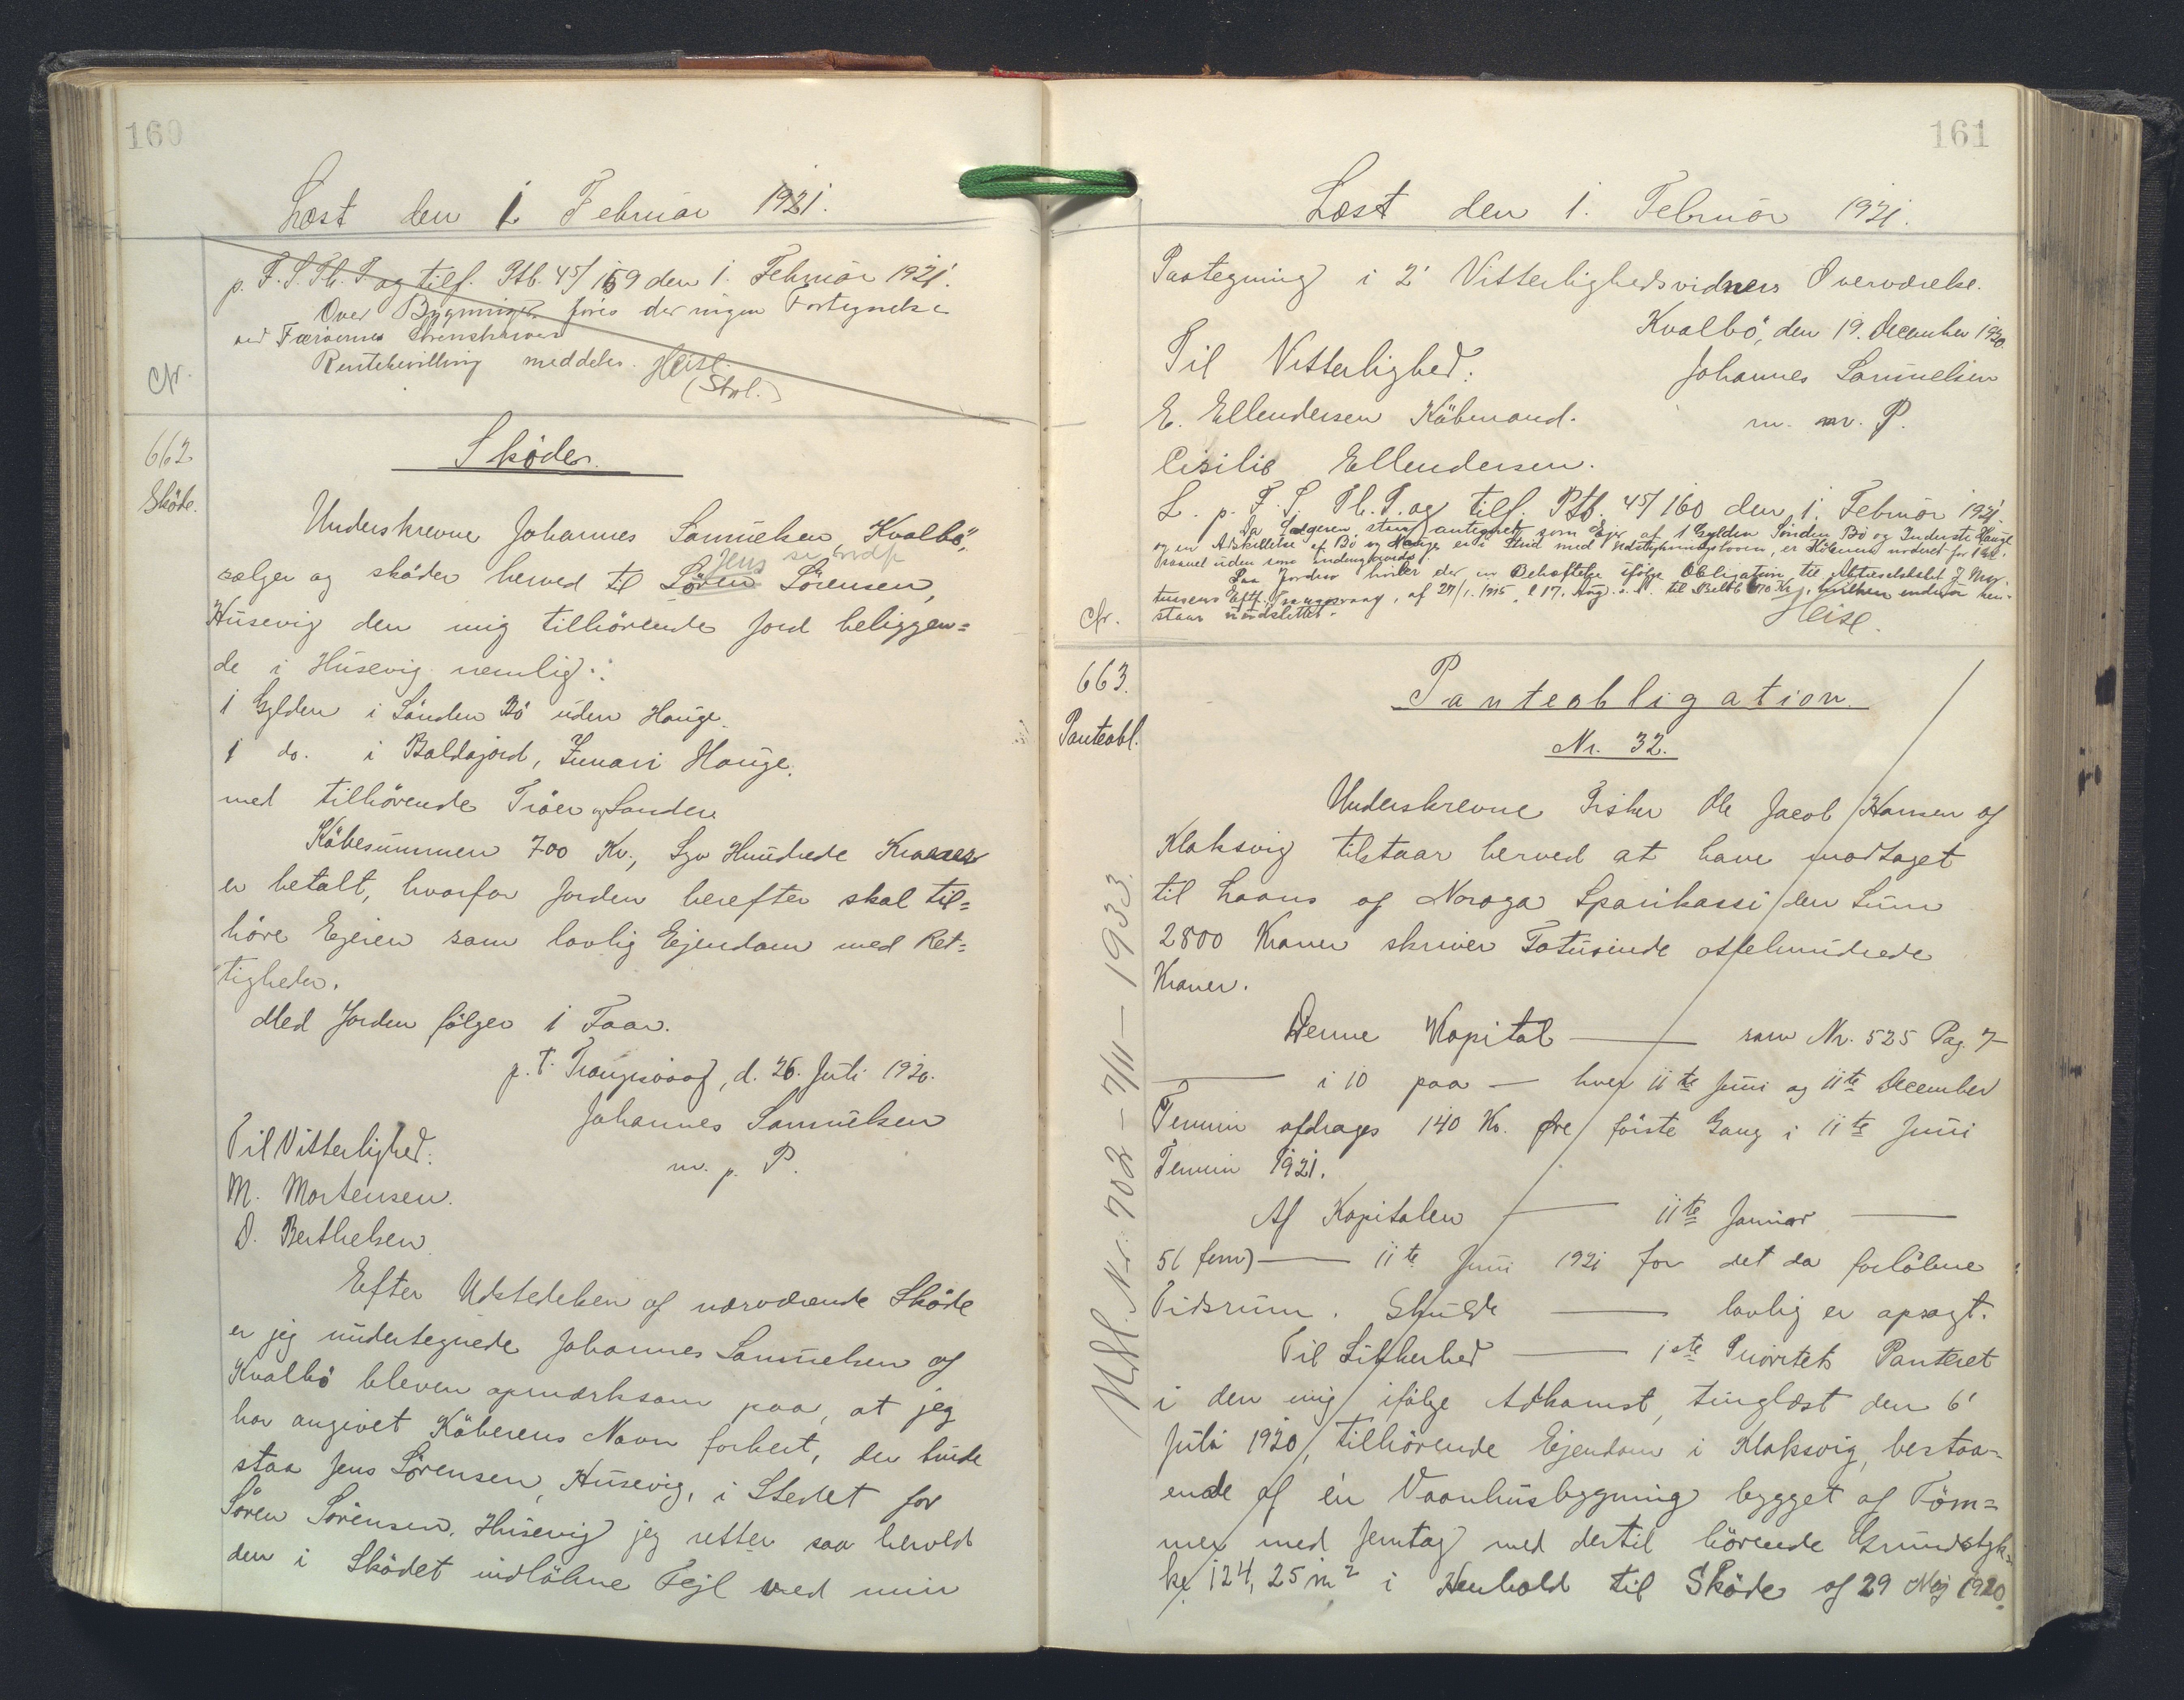 160
Læst den 1. Februar 1921.
p. F. S. Th. T. og tilf. Ptb. 45/159 den 1. Februar 1921.
Over Bygninger föres der ingen Fortegnelse
ved Færöernes Sorenskriveri
Rentebevilling meddeles. Heise.
(Stpl.)
Cfr.
662.
Sköde.
Sköde.
Underskrevne Johannes Samuelsen, Kvalbö,
Jens
sælger og sköder herved til Sören Sörensen,
Husevig den mig tilhörende Jord beliggen=
de i Husevig nemlig:
1 Gylden i Sönden Bö uden Hauge.
1 do. i Baldajord, Hauge.
med tilhörende Tröer og Lunder.
Köbesummen 700 Kr., Syv Hundrede Kroner
er betalt, hvorfor Jorden herefter skal til=
höre Ejeren som lovlig Ejendom med Ret=
tigheder.
Med Jorden fölger 1 Faar.
p. T. Trangisvaag, d. 26. Juli 1920.
Johannes Samuelsen
m. p. P.
Til Vitterlighed:
M. Mortensen.
D. Berthelsen.
Efter Udstedelsen af nærværende Sköde
er jeg undertegnede Johannes Samuelsen af
Kvalbö bleven opmærksom paa, at jeg
har angivet Köberens Navn forkert, der burde
staa Jens Sörensen, Husevig, i Stedet for
Sören Sörensen, Husevig jeg retter saa herved
den i Sködet indlöbne Fejl ved min
161
Læst den 1. Februar 1921.
Paategning i 2 Vitterlighedsvidners Overværelse.
Kvalbö, den 19. December 1920.
Til Vitterlighed:
Johannes Samuelsen
E. Ellendersen Köbmand.
m. P.
Cisilie Ellendersen.
L. p. F. S. Th. T. og tilf. Ptb. 45/160 den 1. Februar 1921.
Da Sælgeren staar antegnet som Ejer af 1 Gylden Sönden Bö og Inderste Hauge
og en Adskillelse af Bö og Hauge er i Strid med Udstykningsloven, er
uden som
Paa Jorden hviler der en Behæftelse ifölge Obligation til Aktieselskabet J. Mor-
tensens Eftf. Trangisvaag, af 27/1. 1915, l. 17. Aug. s. A. til Belöb 670 Kr., hvilken endnu hen-
staar uudslettet.
Heise.
Cfr.
663.
Panteobl.
Panteobligation.
Nr. 32.
Underskrevne Fisker Ole Jacob Hansen af
Klaksvig tilstaar herved at have modtaget
til Laans af Noroya Sparikassi den Sum
2800 Kroner skriver Totusinde ottehundrede
Kroner.
Denne Kapital — som Nr. 525 Pag. 7
— i 10 paa — hver 11te Juni og 11te December
Termin afdrages 140 Kr. Öre förste Gang i 11te Juni
Termin 1921.
Af Kapitalen — 11te Januar —
5 (fem) — 11te Juni 1921 for det da forlöbne
Tidsrum. Skulde — lovlig er opsagt.
Til Sikkerhed — 1ste Prioritets Panteret
i den mig ifölge Adkomst, tinglæst den 6'
Juli 1920, tilhörende Ejendom i Klaksvig, bestaa-
ende af en Vaanhusbygning bygget af Töm=
mer med Jerntag med dertil hörende Grundstyk=
ke 124,25 m² i Henhold til Sköde af 29 Maj 1920.
Udl. Nr. 702 – 7/11 – 1933.